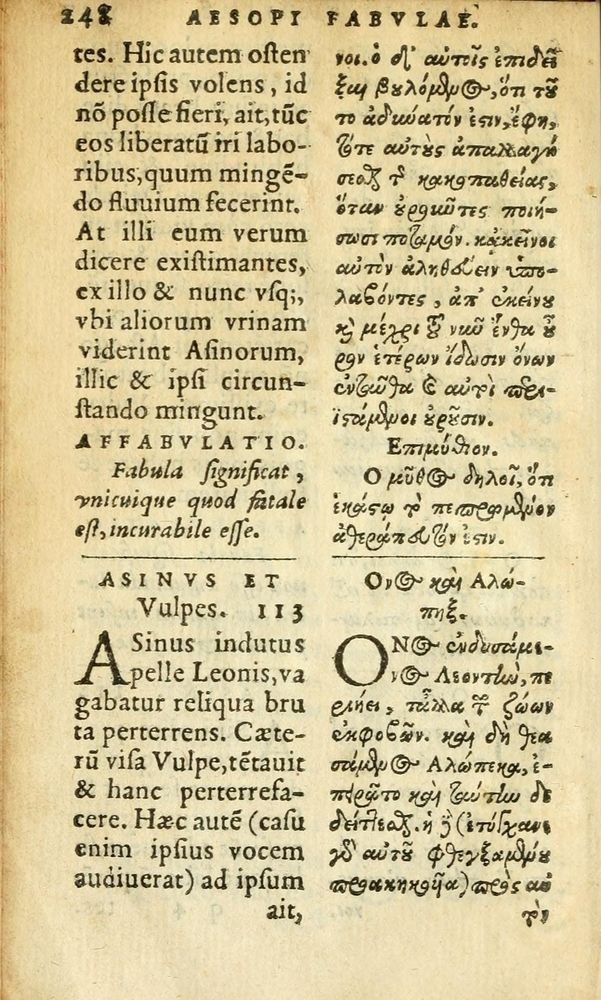 248 AESOPI FABVLAE.
tes. Hic autem osten
dere ipsis volens, id
nõ posse fieri, ait, tũc
eos liberatũ iri labo-
ribus, quum mingẽ-
do fluuium fecerint.
At illi eum verum
dicere existimantes,
ex illo & nunc vsq;,
vbi aliorum vrinam
viderint Asinorum,
illic & ipsi circun-
stando mingunt.
AFFABVLATIO.
Fabula significat,
vnicuique quod fatale
est, incurabile esse.
ASINVS ET
Vulpes. 113
ASinus indutus
pelle Leonis, va
gabatur reliqua bru
ta perterrens. Cæte-
rũ visa Vulpe, tẽtauit
& hanc perterrefa-
cere. Hæc autẽ (casu
enim ipsius vocem
audiuerat) ad ipsum
ait,
νοι. ὁ δ' αὐτοῖς ἐπιδεῖ
ξαι βουλόμενος, ὅτι τοῦ
το ἀδύνατόν ἐστιν, ἔφη,
τότε αὐτοὺς ἀπαλλαγή
σεσθαι τῆς κακοπαθείας,
ὅταν οὐροῦντες ποιή-
σωσι ποταμόν. κἀκεῖνοι
αὐτὸν ἀληθεύειν ὑπο-
λαβόντες, ἀπ' ἐκείνου
καὶ μέχρι τοῦ νῦν ἔνθα οὖ
ρον ἑτέρων ἴδωσιν ὄνων
ἐνταῦθα καὶ αὐτοὶ περι-
ϊστάμενοι οὐροῦσιν.
Επιμύθιον.
Ο μῦθος δηλοῖ, ὅτι
ἑκάστῳ τὸ πεπρωμένον
ἀθεράπευτόν ἐστιν.
Ονος καὶ Αλώ-
πηξ.
ΟΝος ἐνδυσάμε-
νος Λεοντῆν, πε
ριῄει, τἆλλα τῶν ζώων
ἐκφοβῶν. καὶ δὴ θεα
σάμενος Αλώπεκα, ἐ-
πειρᾶτο καὶ ταύτην δε
δίττεσθαι. ἡ δὲ (ἐτύγχανε
γὰρ αὐτοῦ φθεγξαμένου
προακηκουῖα) πρὸς αὐ
τὸν